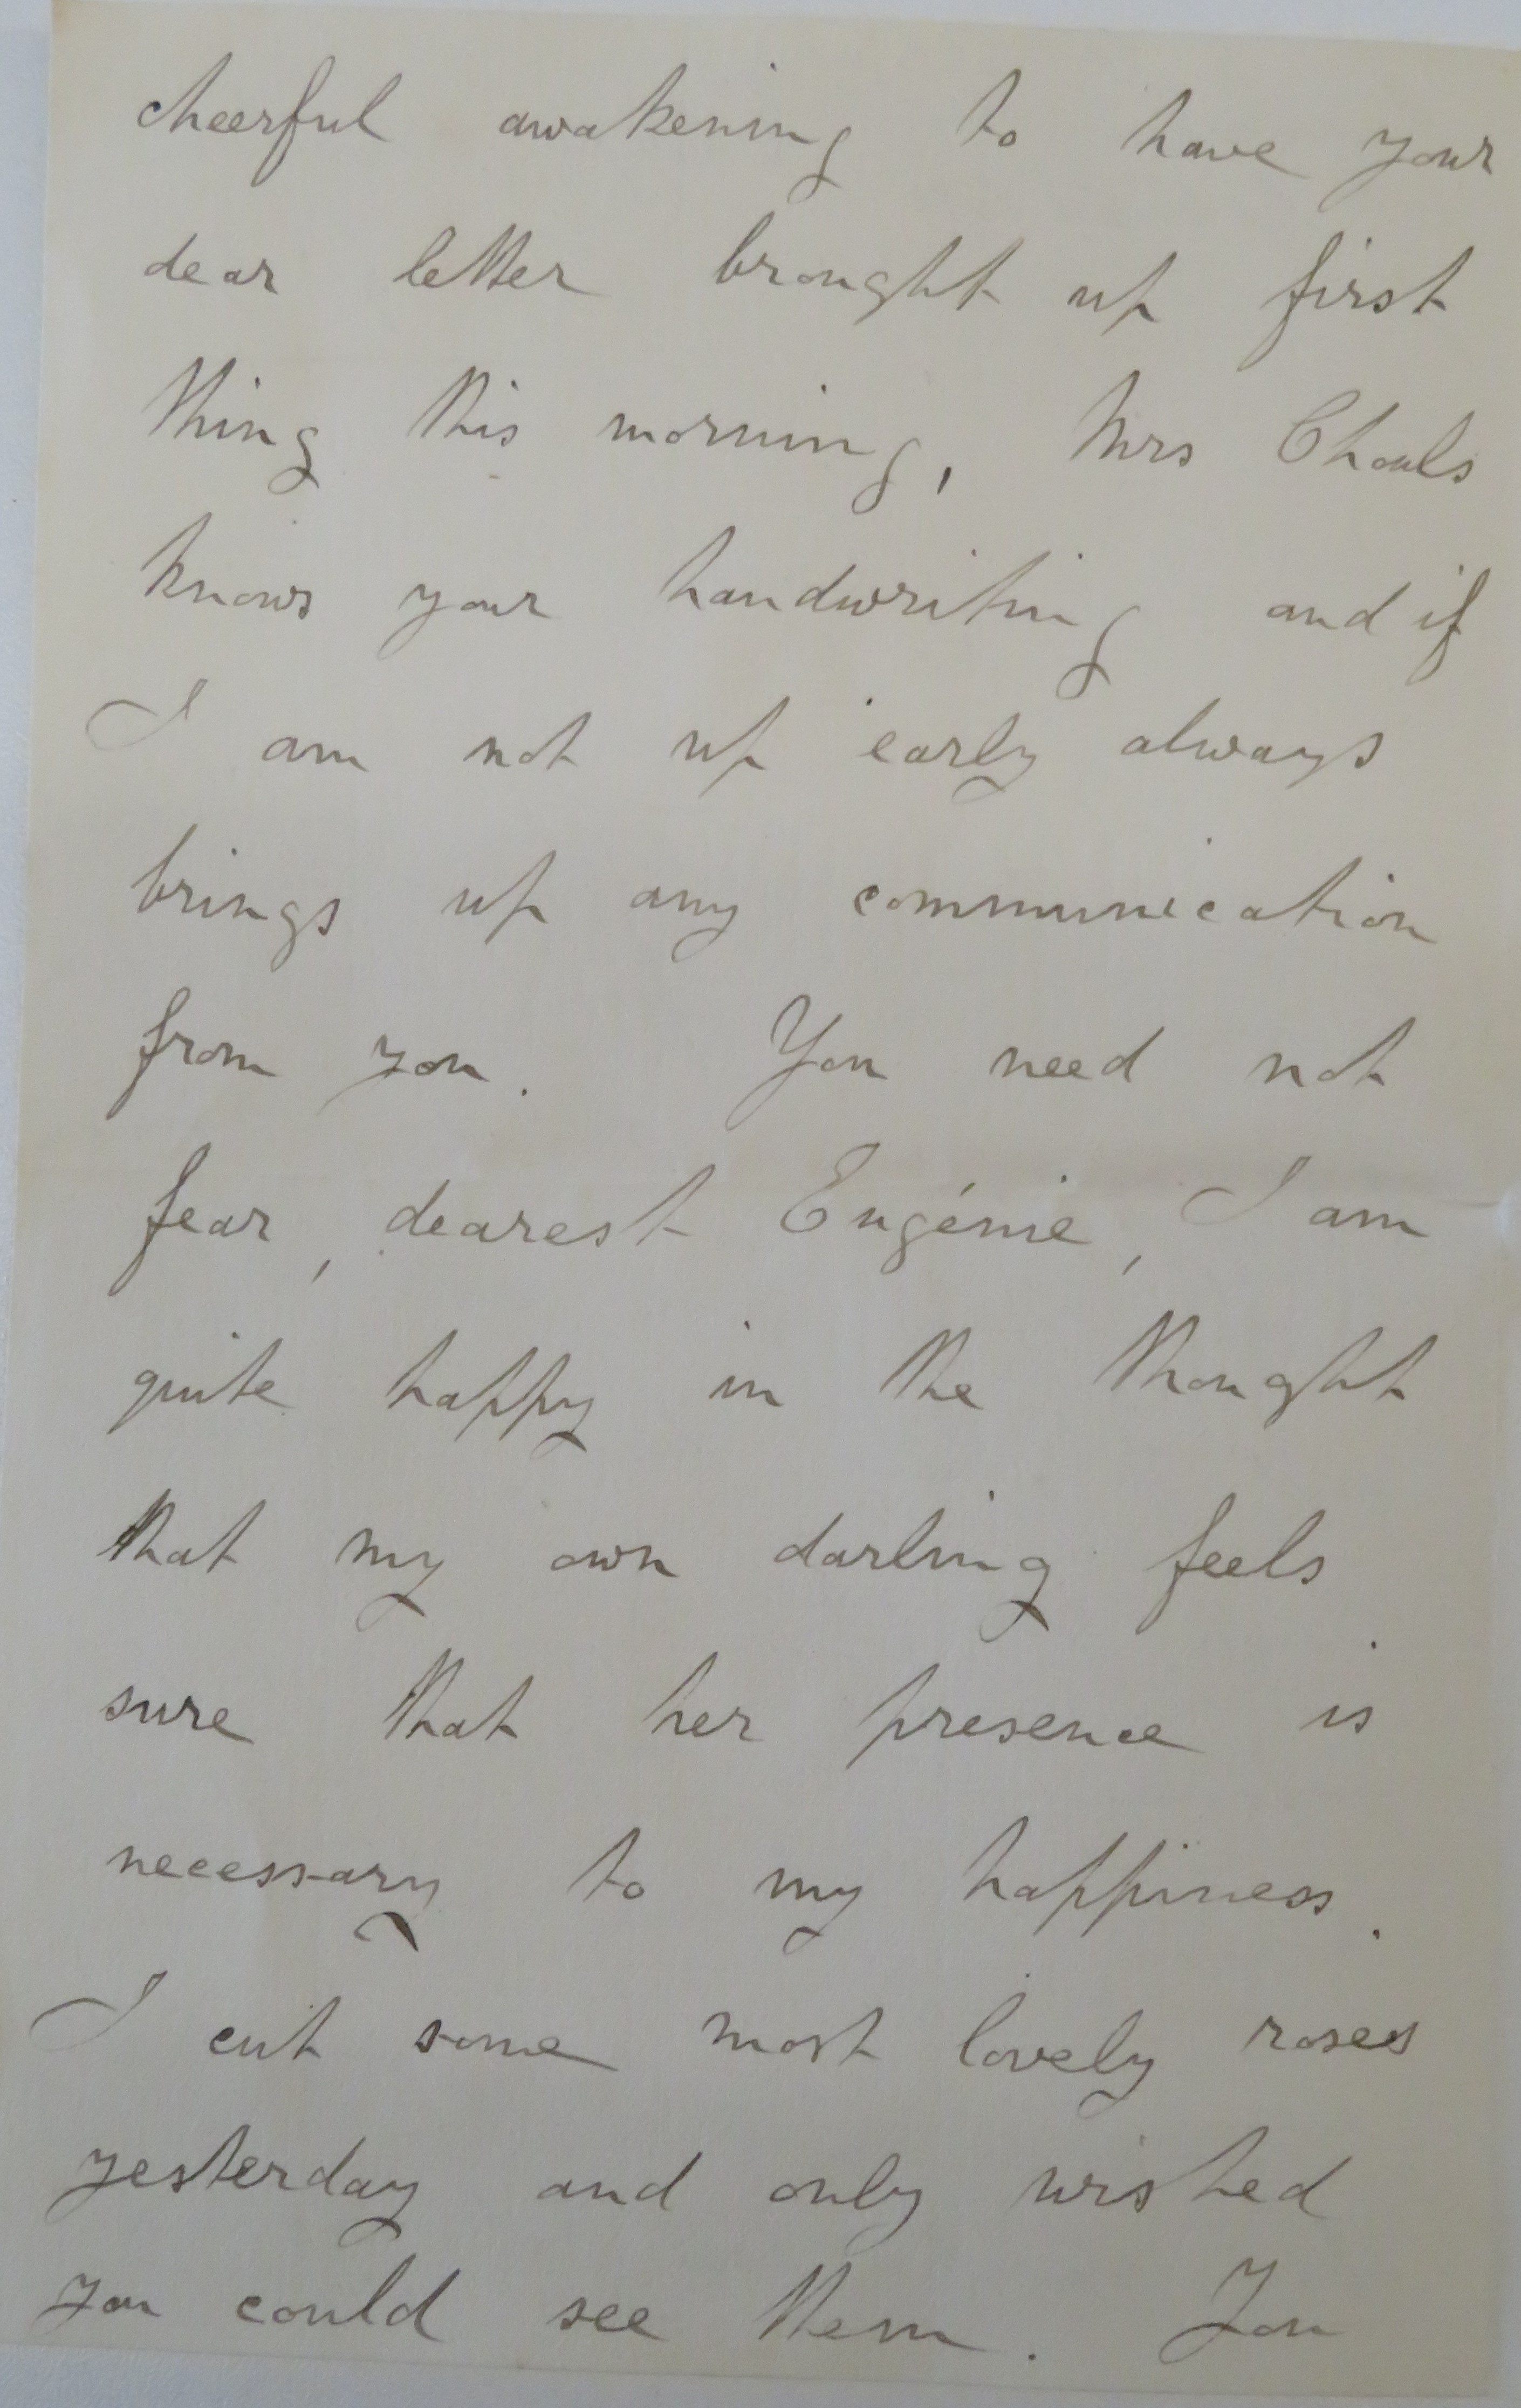 cheerful awakening to have your
dear letter brought up first
thing this morning, Mrs Chouls
knows your handwriting and if
I am not up early always
brings up any communication
from you. You need not
fear, dearest Eugénie, I am
quite happy in the thought
that my own darling feels
sure that her presence is
necessary to my happiness.
I cut some most lovely roses
yesterday and only wished
you could see them. You